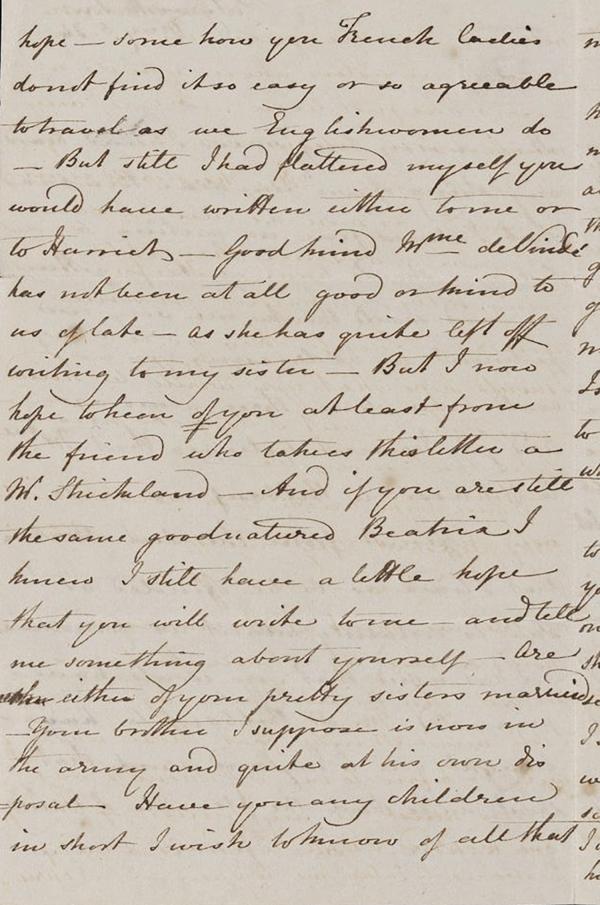 hope — some how you French ladies
do not find it so easy or so agreeable
to travel as we Englishwomen do
— But still I had flattered myself you
would have written either to me or
to Harriet — Good kind Mme de Vindé
has not been at all good or kind to
us of late — as she has quite left off
writing to my sister — But I now
hope to hear of you at least from
the friend who takes this letter a
Mr. Strickland — And if you are still
the same goodnatured Beatrix I
knew I still have a little hope
that you will write to me — and tell
me something about yourself — Are
either of your pretty sisters married
— Your brother I suppose is now in
the army and quite at his own dis
=posal — Have you any children
in short I wish to know of all that